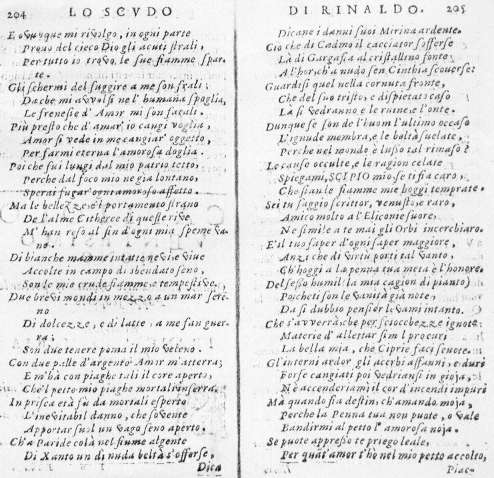 204 LO SCVDO
E ovunque mi rivolgo, in ogni parte
Provo del cieco Dio gli acuti strali,
Per tutto io trovo, le sue fiamme spar-
te.
Gli schermi del fuggire a me son frali;
Da che mi avvolsi ne l'humana spoglia,
Le frenesie d'Amor mi son fatali.
Più presto ch'è d'amar, io cangi voglia,
Amor si vede in me cangiar oggetto,
Per farmi eterna l'amorosa doglia.
Poi che fui lungi dal mio patrio tetto;
Perche dal foco mio ne gia lontano,
Sperai fugar ogn'amoroso affetto.
Ma le bellezze, e'l portamento strano
De l'alme Citheree di queste rive
M'han reso al fin d'ogni mia speme va-
no.
Di bianche mamme intatte nevi e vive
Accolte in campo di sbendato seno,
Son le mie crude fiamme, e tempestive.
Due brevi mondi in mezzo a un mar sere-
no
Di dolcezze, e di latte, a me fan guer-
ra;
Son due tenere poma il mio veleno.
Con due palle d'argento Amor m'atterra;
E m'hà con piaghe tali il core aperto,
Che'l petto mio piaghe mortali inserra.
In prisca età fù da mortali esperto
L'inevitabil danno, che sovente
Apportar suol un vago seno aperto.
Ch'a Paride colà nel fiume algente
Di Xanto un di nuda beltà s'offerse
Dica
DI RINALDO. 205
Dicane i danni suoi Mirina ardente.
Ciò che di Cadmo il cacciator sofferse
Là di Gargafia al cristallino fonte;
A l'hor, ch'a nudo sen Cinthia scouerse:
Guardisi quel nella cornuta fronte,
Che del suo tristo, e dispietato caso
Là si vedranno e le ruine, e l'onte.
Dunque se son de l'huom l'ultimo occaso
L'ignude membra, e le beltà svelate,
Perche nel mondo è l'uso tal rimaso?
Le cause occulte, e le ragion celate
Spiegami, SCIPIO mio se ti fia caro;
Che sian le fiamme mie hoggi temprate.
Sei tu saggio scrittor, venusto, e raro,
Amico molto a l'Eliconie suore,
Ne simile a te mai gli Orbi incerchiaro.
E'il tuo saper d'ogni saper maggiore,
Anzi che di virtù porti tal vanto,
Ch'hoggi a la penna tua meta è l'honore.
Del sesso humil (la mia cagion di pianto)
Poiche ti son le vanità già note,
Da sì dubbio pensier levami intanto.
Che s'avverrà; che per sciocchezze ignote
Materie d'allettar sim'l procuri
La bella mia, che Ciprie faci scuote.
Gl'interni ardor gli acerbi affanni, e duri
Forse cangiati poi vedransi in gioja,
Nè accenderanmi il cor d'incendi impuri
Ma quando sia destin; ch'amando moja,
Perche la Penna tua non puote, o vale
Bandirmi al petto l'amorosa noja.
Se puote appresso te priego leale,
Per quãt'amor t'hò nel mio petto accolto,
Piac-